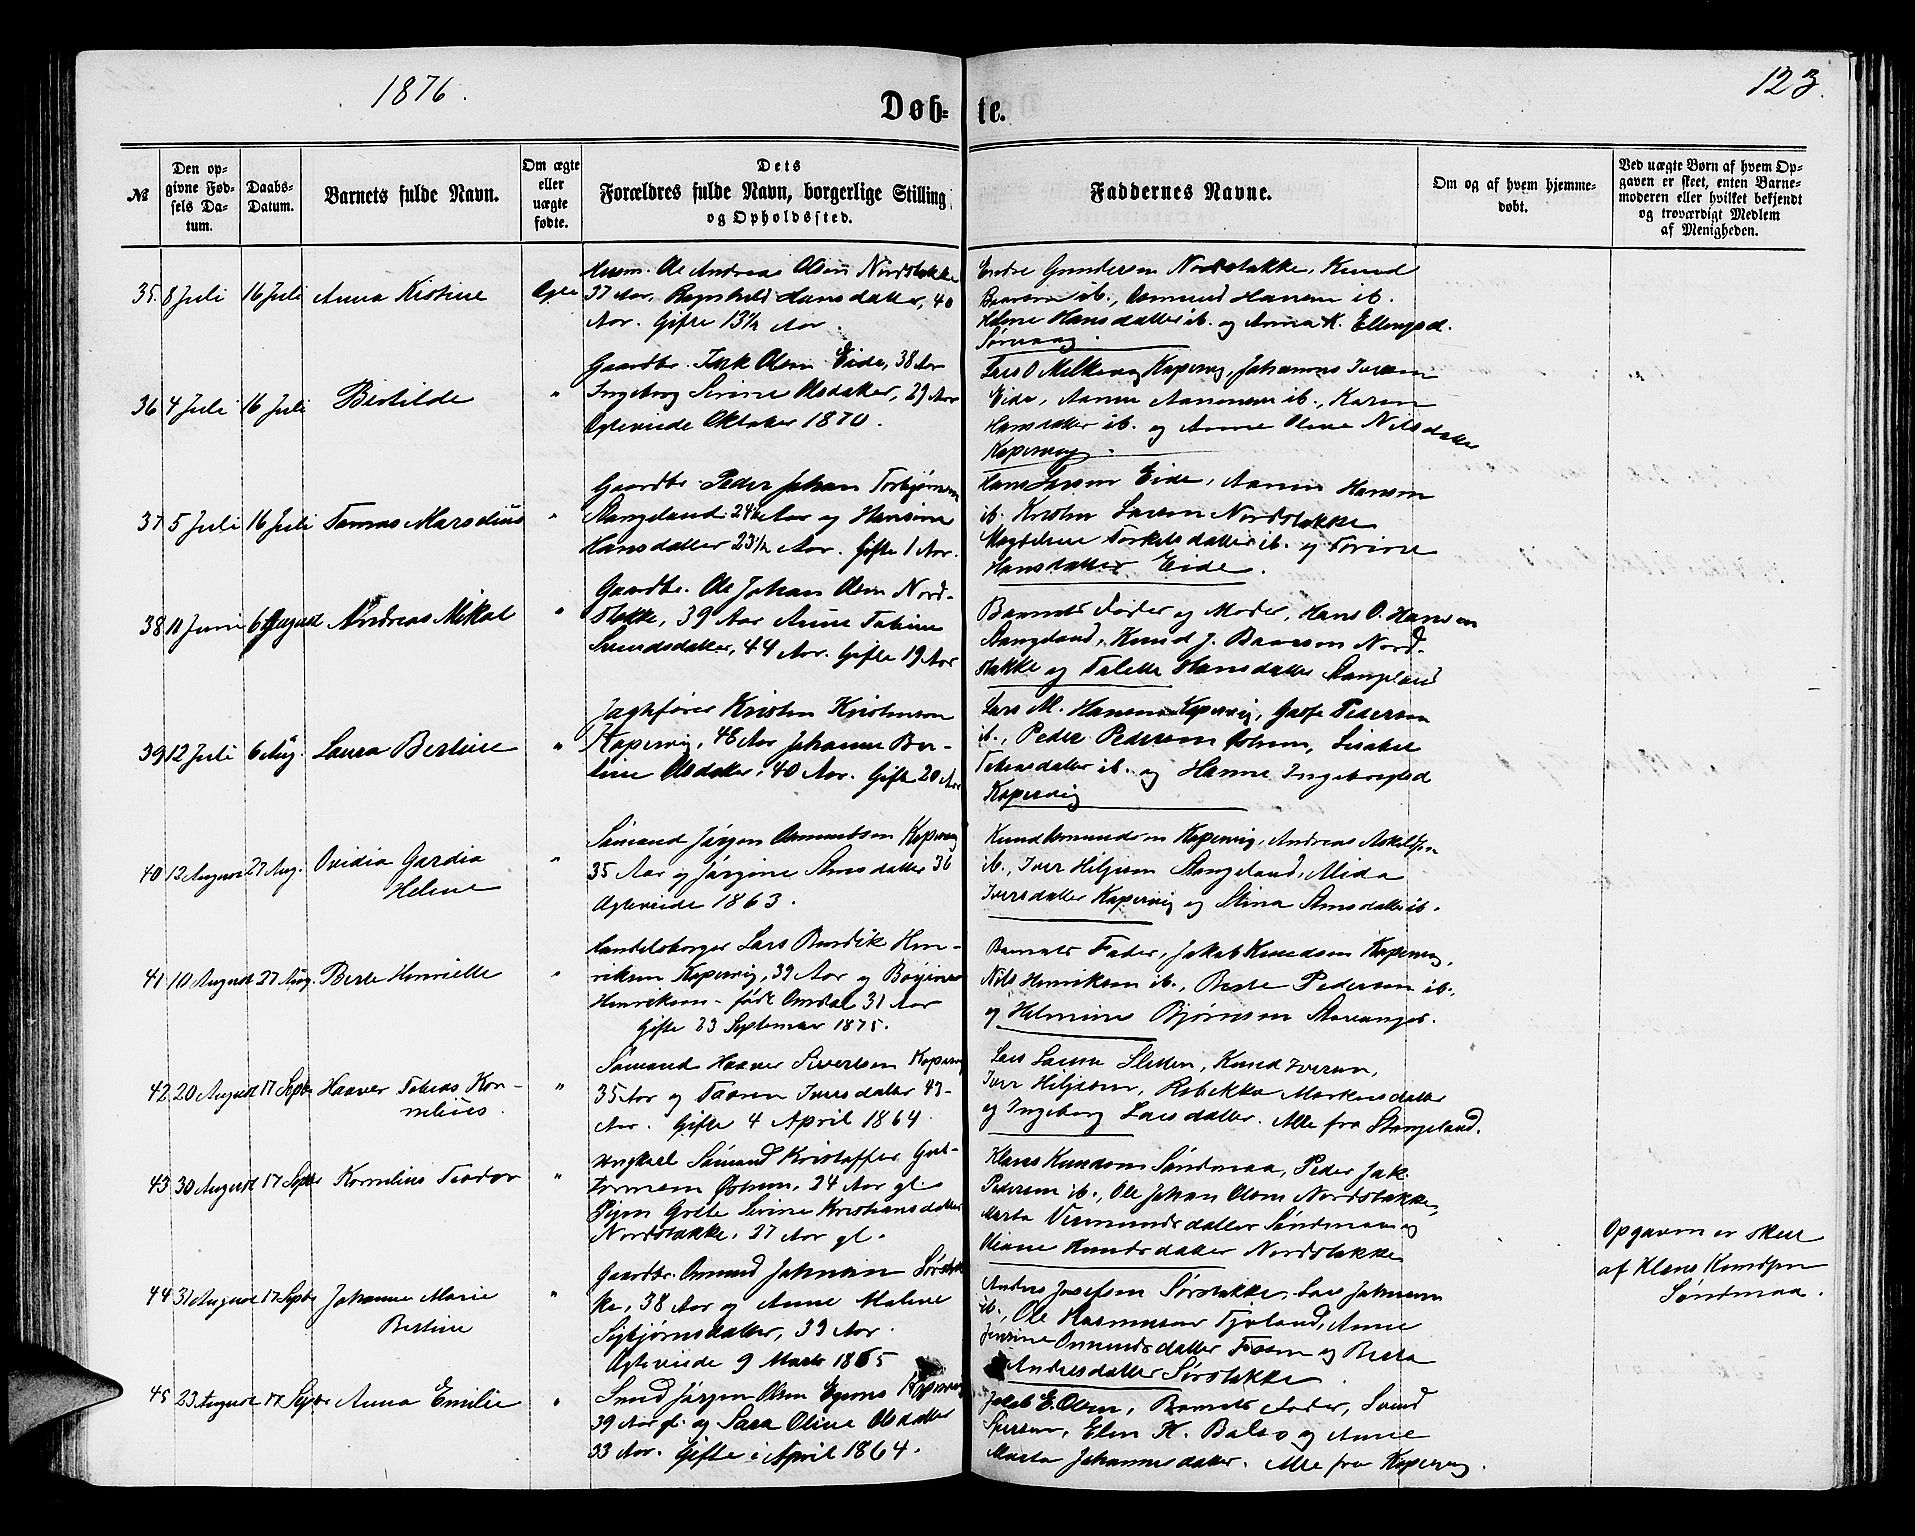 1876.
123.
Døb-
te.
№
Den op-
givne Fød-
sels Da-
tum.
Daabs-
Datum.
Barnets fulde Navn.
Om ægte
eller
uægte
fødte.
Dets
Forældres fulde Navn, borgerlige Stilling
og Opholdssted.
Faddernes Navne.
Om og af hvem hjemme-
døbt.
Ved uægte Børn af hvem Op-
gaven er skeet, enten Barne-
moderen eller hvilket bekjendt
og troværdigt Medlem
af Menigheden.
35. 8 Juli 16 Juli Anna Kistine Ægte
Husm. Ole Andreas Olsen Nordstokke
37 Aar, Ragnhild Hansdatter, 40
Aar. Gifte 13½ Aar.
Endre Gundersen Nordstokke, Knud
Baarsen ib., Osmund Hansen ib.
Helene Hansdatter ib. og Anna K. Ellingsd.
36 4 Juli 16 Juli Bertilde "
Gaardbr. Olsen Eide, 38 Aar
Ingeborg Serine Olsdatter, 29 Aar
Ægteviede Oktober 1870.
Lars O Kopervig, Johannes Iversen
Eide, ib., Karen
Hansdatter ib. og Anne Oline Nilsdatter
Kopervig.
37 5 Juli 16 Juli Tomas Marselius "
Gaardbr. Peder Johan Torbjørnsen
Stangeland 24½ Aar og Hansine
Hansdatter 23½ Aar. Gifte 1 Aar.
Hans Larsen Eide, Hansen
ib. Larsen Nordstokke
Torkelsdatter ib. og Torine
Hansdatter Eide.
38 11 Juni 6 August Andreas Mikal "
Gaardbr. Ole Johan Olsen Nord-
stokke, 39 Aar Anne Tobine
Svendsdatter, 44 Aar. Gifte 19 Aar
Barnets Fader og Moder, Hans O. Hansen
Stangeland, Knud J. Baarsen Nord-
stokke og Talette Hansdatter Stangeland
39 12 Juli 6 Aug. Laura Bertine "
Jagtfører Kristen Kristensen
Kopervig, 48 Aar Johanne Ber-
tine Olsdatter, 40 Aar. Gifte 20 Aar
Lars M. Hansen Kopervig, Pedersen
ib., Peder Pedersen Østrem, Lisabet
ib. og Hanne Ingeborgsd
Kopervig
40 12 August 27 Aug. Ovidia Gardia
Helene "
Sømand Jørgen Osmundsen Kopervig
35 Aar og Jørgine Amsdatter 36
Ægteviede 1863.
Knud Osmundsen Kopervig, Andreas Askelsen
ib., Iver Stangeland,
Iversdatter Kopervig og Stina Amsdatter ib.
41 10 August 27 Aug. Berte Henriette "
Handelsborger Lars Hen-
riksen Kopervig, 39 Aar og
Henriksen født Omdal 31 Aar
Gifte 23 September 1875.
Barnets Fader, Jakob Knudsen Kopervig,
Nils Henriksen ib., Berte Pedersen ib.,
og Bjørnsen Stavanger.
42 20 August 17 Septbr Haaver Tobias Kor-
nelius. "
Sømand Haaver Sivertsen Kopervig
35 Aar og Iversdatter 43
Aar. Gifte 4 April 1864.
Lars Larsen Sletten, Knud Iversen,
Iver, Rebekka Markusdatter
og Ingeborg Larsdatter. Alle fra Stangeland.
43 30 August 17 Septbr Kornelius Teodor "
Ungkarl Sømand Kristoffer Gut-
tormsen Østrem, 24 Aar gl.
Pigen Grete Serine Kristiansdatter
Nordstokke, 27 Aar gl.
Klaus Knudsen Søndmaa, Peder Jak.
Pedersen ib., Ole Johan Olsen Nordstokke,
Marta Vermundsdatter Søndmaa og
Knudsdatter Nordstokke
Opgaven er skeet
af Klaus Knudsen
Søndmaa.
44 31 August 17 Septbr Johanne Marie
Bertine "
Gaardbr. Osmund Johnsen Sørstok-
ke, 38 Aar og Anne Malene
Sigbjørnsdatter, 39 Aar.
Ægteviede 9 Marts 1865
Anders Josefsen Sørstokke, Lars Johnsen
ib., Ole Rasmussen, Anne
Osmundsdatter og Berta
Andersdatter Sørstokke.
45 23 August 17 Septbr Anna Emilie "
Smed Jørgen Olsen Kopervig
39 Aar gl. og Sara Oline Olsdatter
33 Aar. Gifte i April 1864.
Jakob E. Olsen, Barnets Fader, Svend
, Elen K. og Anne
Marta Johannesdatter. Alle fra Kopervig.